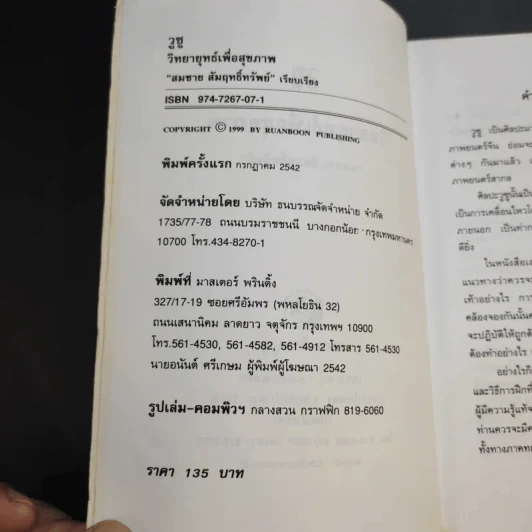 วูซู
วิทยายุทธ์เพื่อสุขภาพ
"สมชาย สัมฤทธิ์ทรัพย์" เรียบเรียง
ISBN 974-7267-07-1
COPYRIGHT © 1999 BY RUANBOON PUBLISHING
พิมพ์ครั้งแรก กรกฎาคม 2542
จัดจำหน่ายโดย บริษัท ธนบรรณจัดจำหน่าย จำกัด
1735/77-78 ถนนบรมราชชนนี บางกอกน้อย กรุงเทพมหานคร
10700 โทร.434-8270-1
พิมพ์ที่ มาสเตอร์ พรินติ้ง
327/17-19 ซอยศรีอัมพร (พหลโยธิน 32)
ถนนเสนานิคม ลาดยาว จตุจักร กรุงเทพฯ 10900
โทร.561-4530, 561-4582, 561-4912 โทรสาร 561-4530
นายอนันต์ ศรีเกษม ผู้พิมพ์ผู้โฆษณา 2542
รูปเล่ม-คอมพิวฯ กลางสวน กราฟฟิก 819-6060
ราคา 135 บาท
วูซู เป็นศิลปะมา
ภาพยนตร์จีน ย่อมจะ
ต่างๆ กันมาแล้ว
ภาพยนตร์สากล
ศิลปะวูซูนั้นเป็น
เป็นการเคลื่อนไหวโด
ภายนอก เป็นท่าก
ดียิ่ง
ในหนังสือเล
แนวทางว่าควรจะ
เท้าอย่างไร กา
คล้องจองกันนั้นค
จะปฏิบัติให้ถูกต้
ต้องทำอย่างไร
อย่างไรก็
และวิธีการฝึกที่
ผู้มีความรู้แท้จ
ท่านควรจะมีค
ทั้งทางภาคทฤ